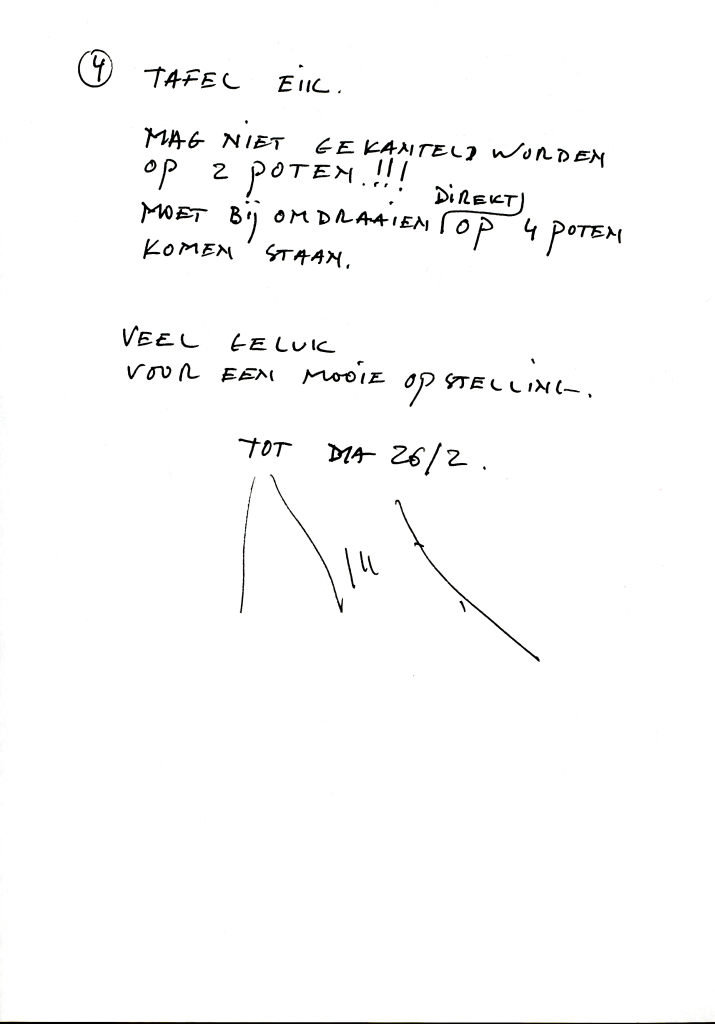 4 TAFEL EIK.
MAG NIET GEKANTELD WORDEN
OP 2 POTEN.!!!
MOET BIJ OMDRAAIEN DIREKT OP 4 POTEN
KOMEN STAAN.
VEEL GELUK
VOOR EEN MOOIE OPSTELLING.
TOT MA 26/2.